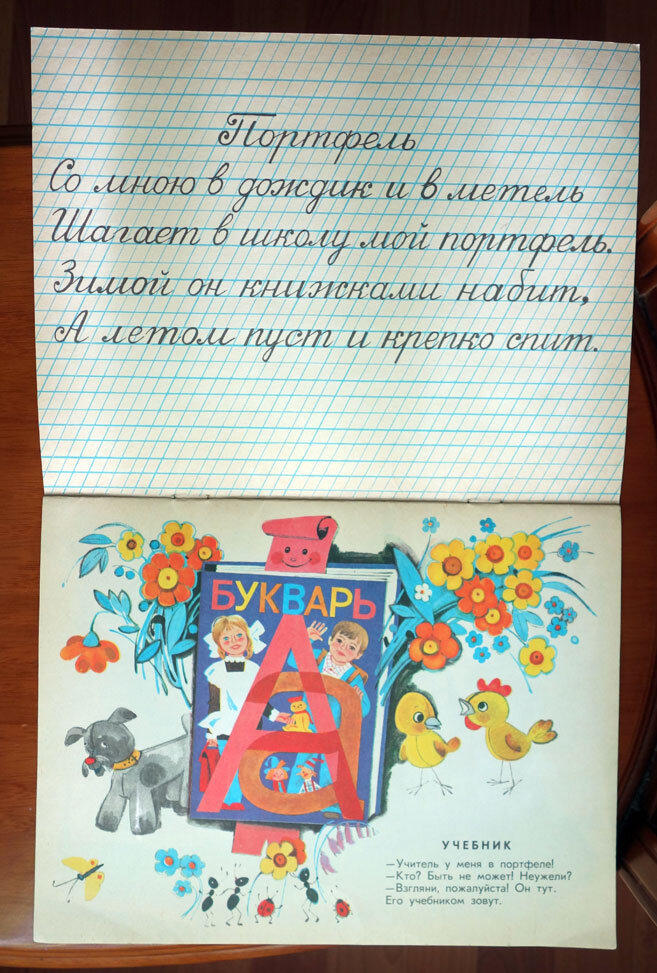 Портфель
Со мною в дождик и в метель
Шагает в школу мой портфель.
Зимой он книжками набит,
А летом пуст и крепко спит.
БУКВАРЬ
А
а
УЧЕБНИК
—Учитель у меня в портфеле!
—Кто? Быть не может! Неужели?
—Взгляни, пожалуйста! Он тут.
Его учебником зовут.